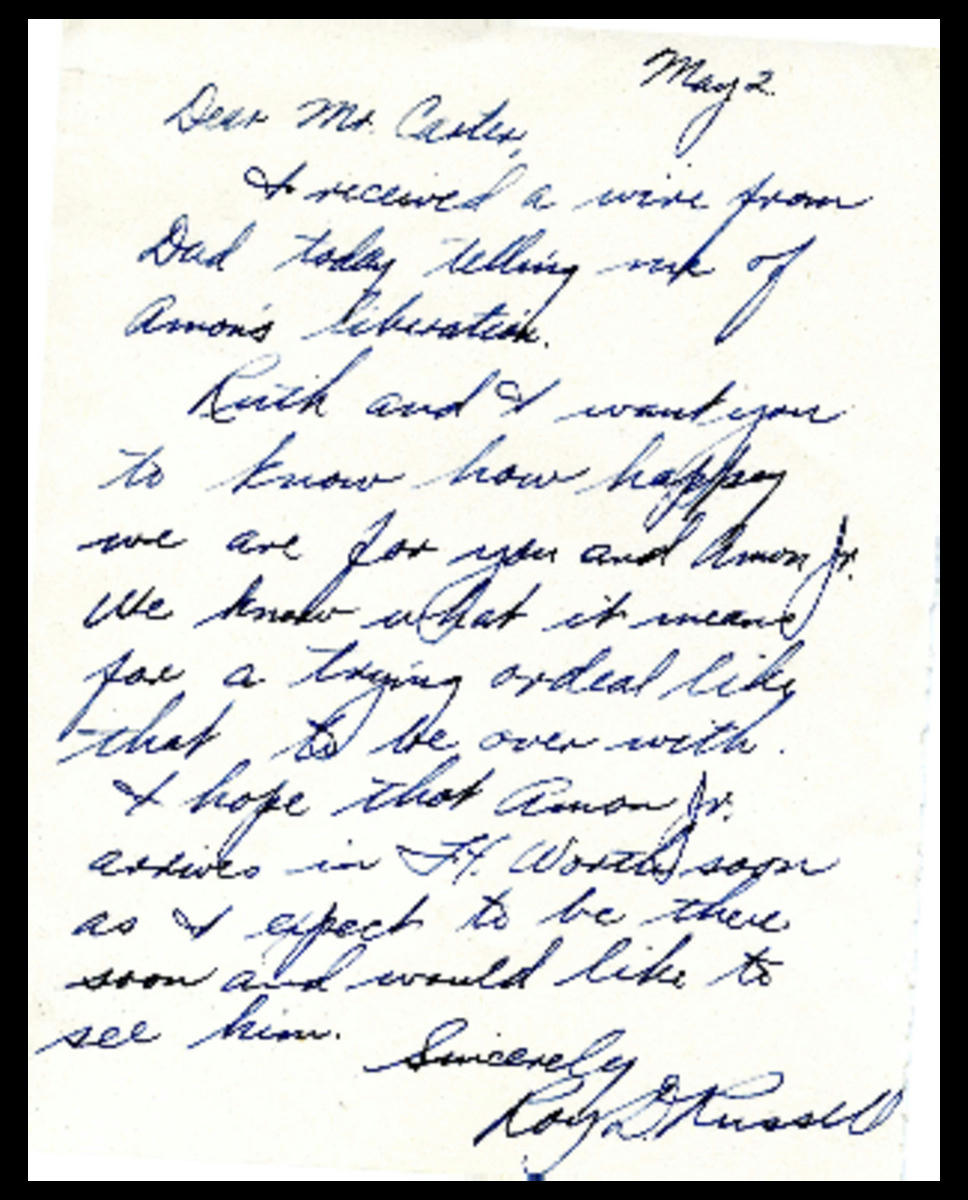 May 2.
Dear Mr. Carter,
I received a wire from
Dad today telling me of
Amon's liberation.
Ruth and I want you
to know how happy
we are for you and Amon Jr.
We know what it means
for a trying ordeal like
that to be over with.
I hope that Amon Jr.
arrives in Ft. Worth soon
as I expect to be there
soon and would like to
see him.
Sincerely
Roy D Russell